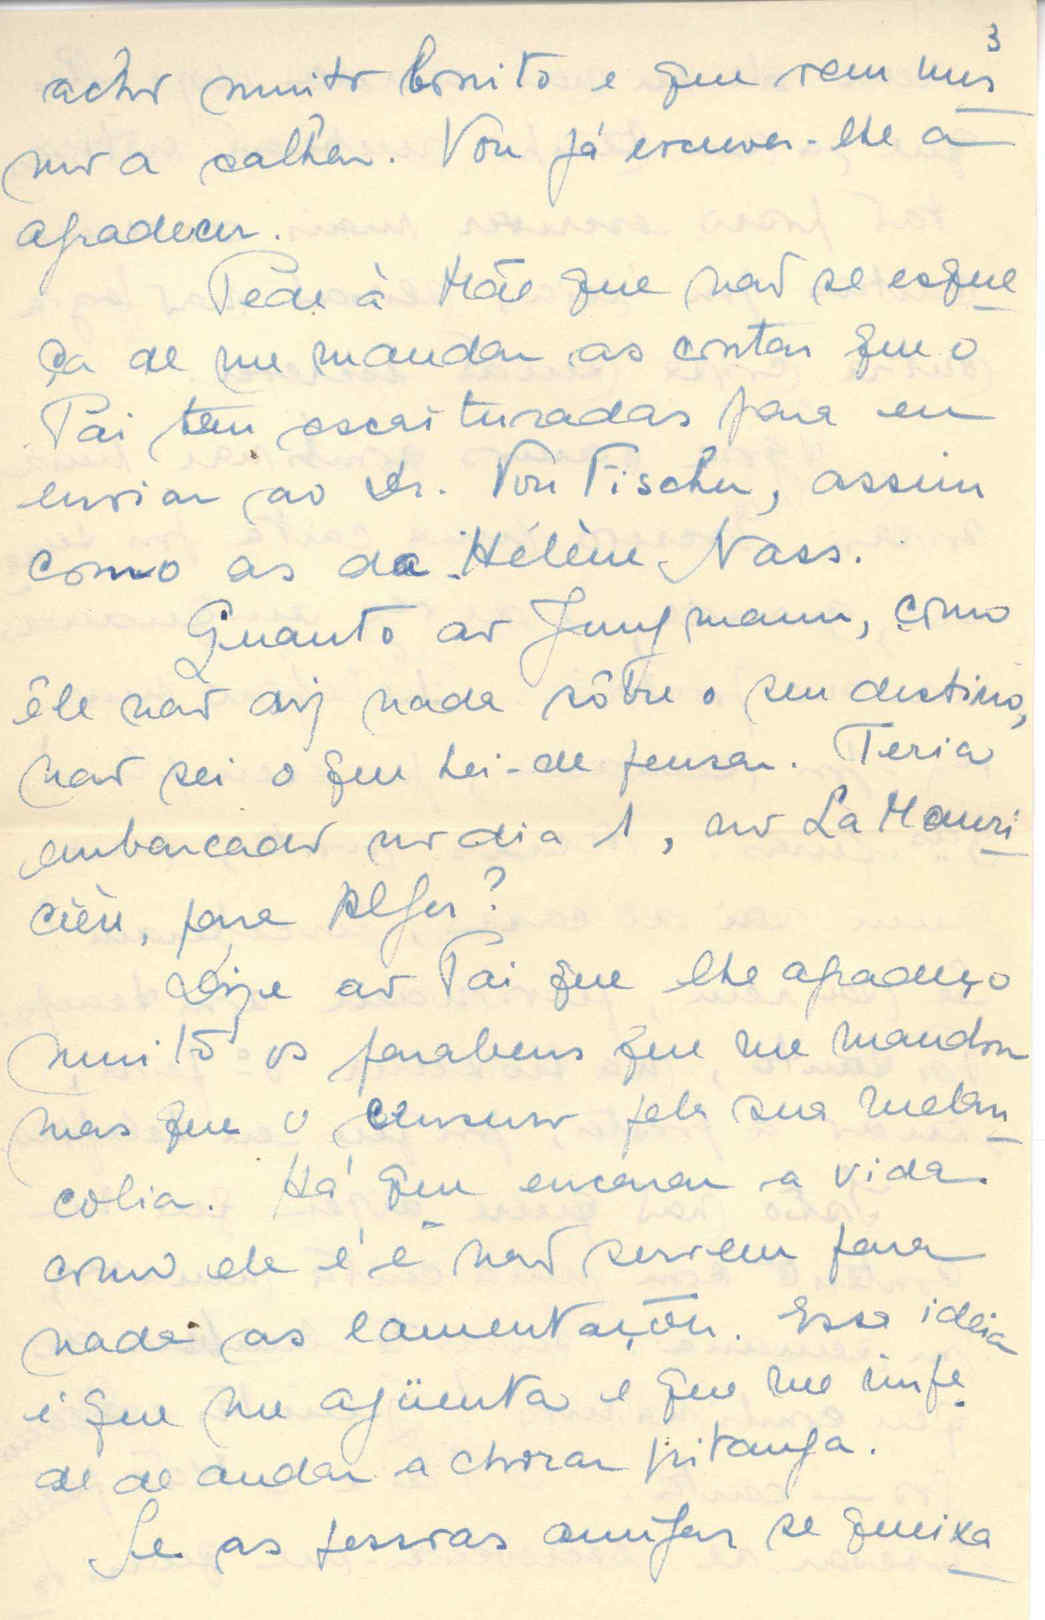 3
acho muito bonito e que vem mes
mo a calhar. Vou já escrever-lhe a
agradecer.
Pede à Mãe que não se esque
ça de me mandar as contas que o
Pai tem escrituradas para eu
enviar ao Dr. Von Fischer, assim
como as da Hélène Nass.
Quanto ao Jungmann, como
êle não diz nada sôbre o seu destino,
não sei o que hei-de pensar. Teria
embarcado no dia 1, no La Mauri
cière, para Alger?
Dize ao Pai que lhe agradeço
muito os parabens que me mandou
mas que o censuro pela sua melan
colia. Há que encarar a vida
como ela é e não servem para
nada as lamentações. Essa ideia
é que me agüenta e que me impe
de de andar a chorar pitanga.
Se as pessoas amigas se queixa